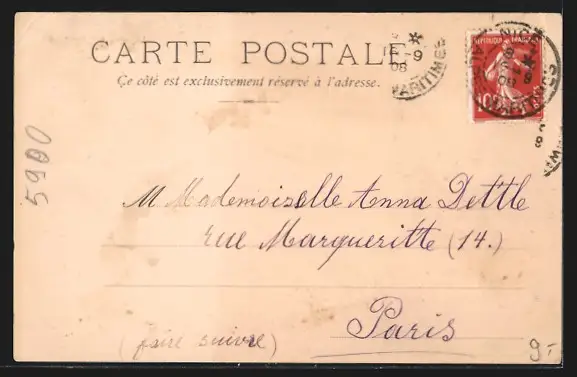 CARTE POSTALE
Ce côté est exclusivement réservé à l'adresse.
NICE
MARITIMES
9
08
REPUBLIQUE FRANÇAISE
10
5900
M Mademoiselle Anna Dettle
rue Margueritte (14.)
Paris
(faire suivre)
9.-